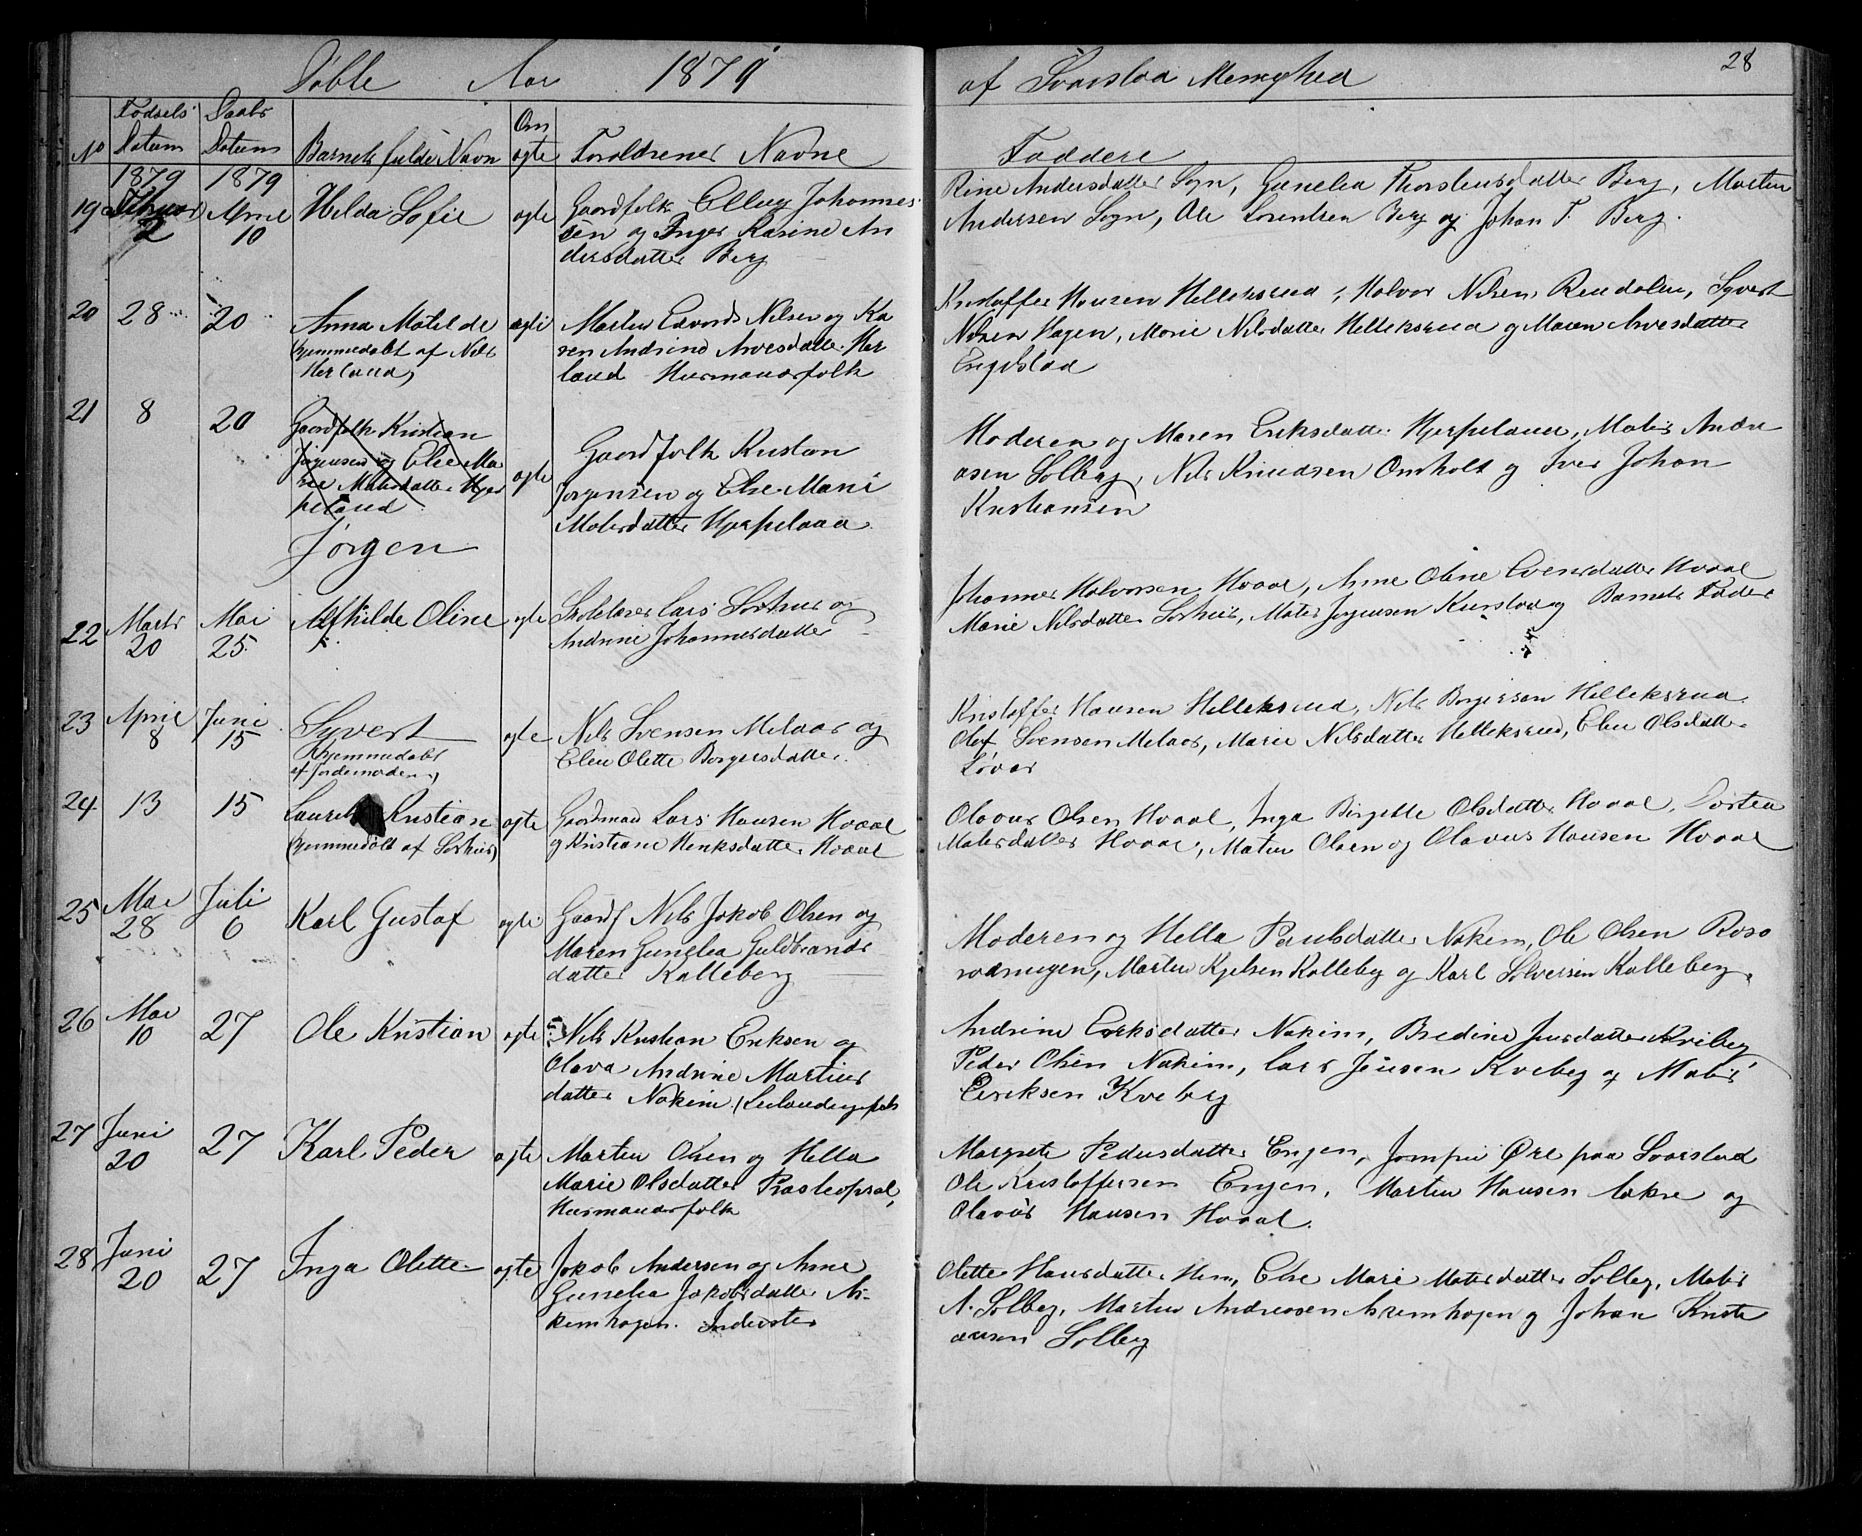 Döbte Aar 1879
af Svarstad Menighed
28
No
Födsels Datum
Daabs Datum
Barnets fulde Navn
Om ægte
Foreldrenes Navne
Faddere
1879 1879
19 2 April 10 Helda Sofie ægte Gaardfolk Ellug Johannes
sen og Inger Karine An
dersdatter Berg
Rine Andersdatter Sogn, Gunelia Thorstensdatter Berg, Martin
Andersen Sogn, Ole Lorentsen Berg og Johan T. Berg.
20 28 20 Anna Matilde
(hjemmedøbt af Nils
Herland)
ægte Martin Edvard Nilsen og Ka
ren Andrine Arvesdatter Her
land Husmandsfolk
Kristoffer Hansen Helleksrud, Halvor Nilsen Rendalen, Syvert
Nilsen Hagen, Marie Nilsdatter Helleksrud og Maren Arvesdatter
Engelstad
21 8 20 Gaardfolk Kristian
Jörgensen og Else Ma
rie Matisdatter Hjer
peland
Jörgen
ægte Gaardfolk Kristian
Jörgensen og Else Marie
Matisdatter Hjerpelaaa
Moderen og Maren Eriksdatter Hjerpeland, Matis Andre
asen Solberg, Nils Knudsen Omholt og Iver Johan
Kristiansen
22 Marts 20 Mai 25 Alfhilde Oline ægte Skolelærer Lars Sörhus og
Andrine Johannesdatter
Johannes Halvorsen Hvaal, Anne Oline Evensdatter Hvaal
Marie Nilsdatter Sörhus, Matis Jörgensen Kurstad og Barnets Fader
23 April 8 Juni 15 Syvert
Hjemmedöbt
af Jordemoderen)
ægte Nils Svensen Melaas og
Elen Olette Borgersdatter.
Kristoffer Hansen Helleksrud, Nils Borgersen Helleksrud
Olef Svensen Melaas, Marie Nilsdatter Helleksrud, Elen Olsdatter
Lövas
24 13 15 Kristian
(hjemmedöbt af Sörhus)
ægte Gaardmand Lars Hansen Hvaal
og Kristiane Henriksdatter Hvaal
Olavus Olsen Hvaal, Inga Birgitte Olsdatter Hvaal, Dortea
Matisdatter Hvaal, Martin Olsen og Olavus Hansen Hvaal
25 Mai 28 Juli 6 Karl Gustaf ægte Gaardf Nils Jakob Olsen og
Maren Gunelia Guldbrands
datter Kalleberg
Moderen og Hella Paulsdatter Nakim, Ole Olsen
Martin Kjelsen Kalleberg og Karl Solversen Kalleberg.
26 Mai 10 27 Ole Kristian ægte Nils Kristian Eriksen og
Olava Andrine Martins
datter Nakim (Leilændingsfolk
Andrine Eriksdatter Nakim, Bredine Jensdatter Kveberg
Peder Olsen Nakim, Lars Jensen Kveberg og Matis
Eriksen Kveberg
27 Juni 20 27 Karl Peder ægte Martin Olsen og Hella
Marie Olsdatter
Husmandsfolk
Margrete Pedersdatter Engen, Jomfru Øre paa Svarstad
Ole Kristoffersen Engen, Martin Hansen og
Olavus Hansen Hvaal.
28 Juni 20 27 Inga Olette ægte Jakob Andersen og Anne
Gunelia Jakobsdatter As
kimhagen. Inderster
Olette Hansdatter Hem, Else Marie Matisdatter Solberg, Matis
A. Solberg, Martin Andreassen Askimhagen og Johan Kristi
ansen Solberg